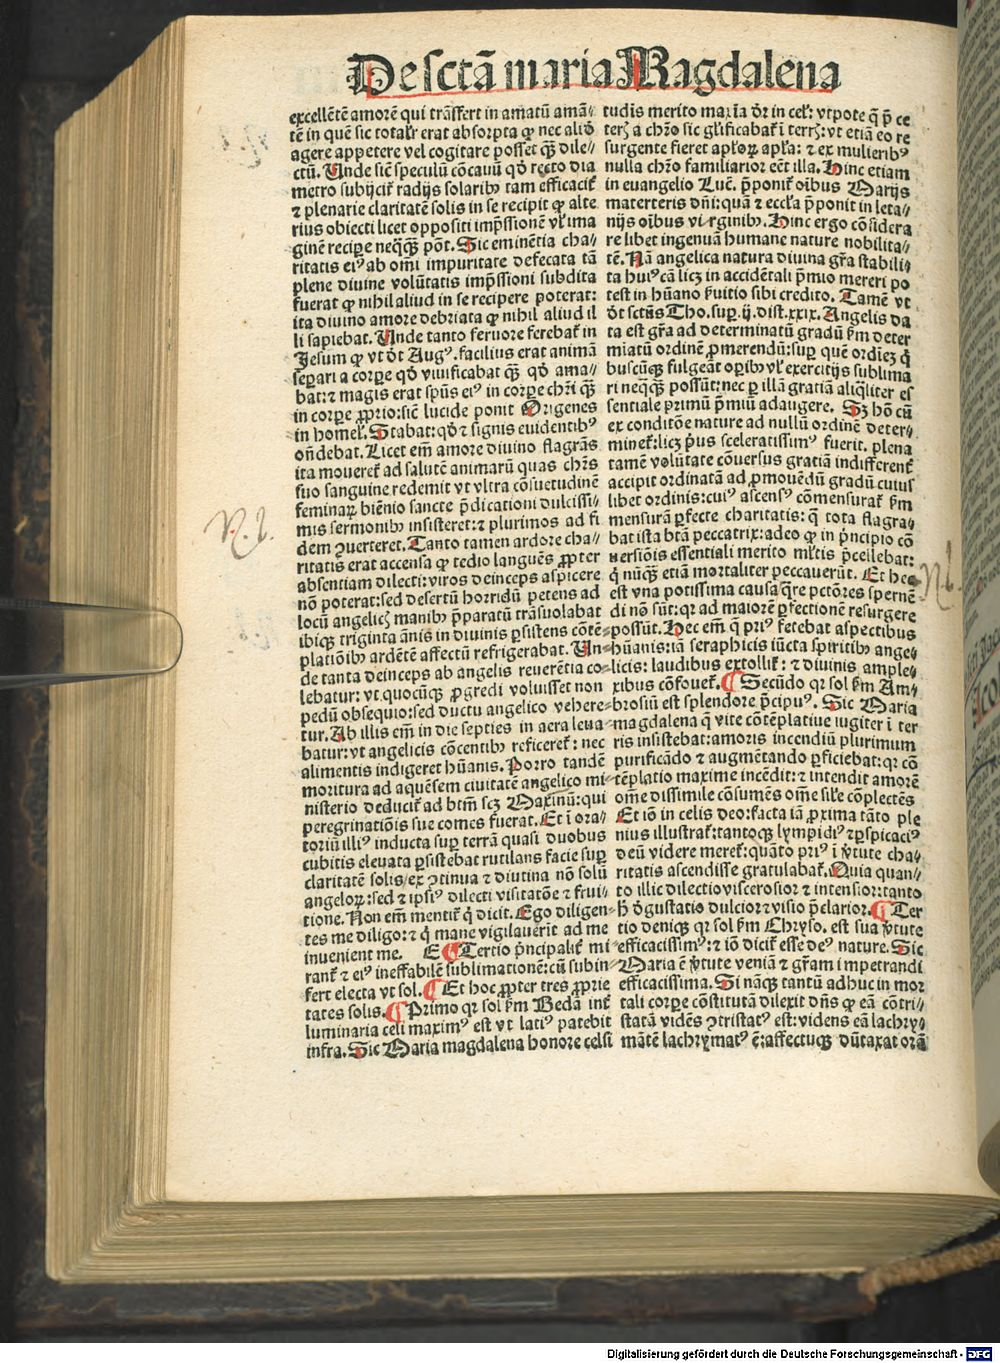 De sctā maria Magdalena
excellētē amorē qui trāffert in amatū amā⸗
tē in quē sic totalr̄ erat absorpta qꝫ nec aliđ
agere appetere vel cogitare posset qꝫ̄ dile⸗
ctū. Unde sic̄ speculū cōcauū qđ recto dia
metro subijcit᷑ radijs solarib⁹ tam efficacit᷑
⁊ plenarie claritatē solis in se recipit ꝙ alte
rius obiecti licet oppositi imp̄ssionē vl̓ ima
ginē recipe neqꝫ̄ pōt. Sic eminētia cha⸗
ritatis ei⁹ ab om̄i impuritate defecata tā
plene diuine volūtatis imp̄ssioni subdita
fuerat ꝙ nihil aliud in se recipere poterat:
ita diuino amore debriata ꝙ nihil aliud il
li sapiebat. Unde tanto feruore ferebat᷑ in
Jesum ꝙ vt đt Aug⁹. facilius erat animā
separi a corpe qđ viuificabat qꝫ̄ qđ ama⸗
bat: ⁊ magis erat spūs ei⁹ in corpe chr̄i qꝫ̄
in corpe ꝓprio: sic̄ lucide ponit Origenes
in homel̓. Stabat: qđ ⁊ signis euidentib⁹
on̄debat. Licet em̄ amore diuino flagrās
ita moueret᷑ ad salutē animarū quas chr̄s
suo sanguine redemit vt vltra cōsuetudinē
feminaꝝ biēnio sancte p̄dicationi dulcissi⸗
mis sermonib⁹ insisteret: ⁊ plurimos ad fi
dem ꝯuerteret. Tanto tamen ardore cha⸗
ritatis erat accensa ꝙ tedio languēs ꝓpter
absentiam dilecti: viros deinceps aspicere
nō poterat: sed desertū horridū petens ad
locū angelic̄ manib⁹ p̄paratū trāsuolabat
ibiqꝫ triginta ānis in diuinis ꝑsistens cōtē⸗
platiōib⁹ ardētē affectū refrigerabat. Un⸗
de tanta deinceps ab angelis reuerētia co⸗
lebatur: vt quocūqꝫ ꝓgredi voluisset non
pedū obsequio: sed ductu angelico vehere⸗
tur. Ab illis em̄ in die septies in aera leua⸗
batur: vt angelicis cōcentib⁹ reficeret᷑: nec
alimentis indigeret hūanis. Porro tandē
moritura ad aquēsem ciuitatē angelico mi⸗
nisterio deducit᷑ ad btm̄ scꝫ Maximū: qui
peregrinatiōis sue comes fuerat. Et ī ora⸗
toriū illi⁹ inducta sup terrā quasi duobus
cubitis eleuata ꝑsistebat rutilans facie sup
claritatē solis/ ex ꝯtinua ⁊ diutina nō solū
angeloꝝ: sed ⁊ ipsi⁹ dilecti visitatōe ⁊ frui⸗
tione. Non em̄ mentit᷑ q̄ dicit. Ego diligen⸗
tes me diligo: ⁊ q̄ mane vigilauerit ad me
inuenient me. E ¶ Tertio p̄ncipalit᷑ mi
rant᷑ ⁊ ei⁹ ineffabilē sublimationē: cū subin⸗
fert electa vt sol. ¶ Et hoc ꝓpter tres ꝓprie
tates solis. ¶ Primo qr sol ẜm Bedā int᷑
luminaria celi maxim⁹ est vt lati⁹ patebit
infra. Sic Maria magdalena honore celsi
tudis merito maxīa đr in cel̓: vtpote q̄ p̄ ce
terꝭ a chr̄o sic gl̓ificabat᷑ ī terrꝭ: vt etiā eo re
surgente fieret apl̓oꝝ apl̓a: ⁊ ex mulierib⁹
nulla chr̄o familiarior eēt illa. Hinc etiam
in euangelio Luē. p̄ponit᷑ oībus Marijs
materteris dn̄i: quā ⁊ eccl̓a p̄ponit in leta⸗
nijs oībus virginib⁹. Hinc ergo cōsidera
re libet ingenuā humane nature nobilita⸗
tē. Nā angelica natura diuina gr̄a stabili⸗
ta hui⁹cā licꝫ in accidētali p̄mio mereri po
test in hūano ẜuitio sibi credito. Tamē vt
đt sctūs Tho. sup. ij. dist. xxix. Angelis da
ta est gr̄a ad determinatū gradū ẜm deter
miatū ordinē ꝓmerendū: sup quē ordiēꝫ q̄
buscūqꝫ fulgeāt opib⁹ vl̓ exercitijs sublima
ri neqꝫ̄ possūt: nec ꝑ illā gratiā aliq̄liter es
sentiale primū p̄miū adaugere. Sꝫ hō cū
ex conditōe nature ad nullū ordinē deter⸗
minet᷑: licꝫ p̄us sceleratissim⁹ fuerit. plena
tamē volūtate cōuersus gratiā indifferent᷑
accipit ordinatā ad ꝓmouēdū gradū cuius
libet ordinis: cui⁹ ascens⁹ cōmensurat᷑ ẜm
mensurā ꝑfecte charitatis: q̄ tota flagra⸗
bat ista btā peccatrix: adeo ꝙ in p̄ncipio cō
uersiōis essentiali merito ml̓tis p̄cellebat:
q̄ nūqꝫ̄ etiā mortaliter peccauerūt. Et hec
est vna potissima causa q̄re pctōres spernē
di nō sūt: qr ad maiorē ꝑfectionē resurgere
possūt. Hec em̄ q̄ pri⁹ fetebat aspectibus
hūanis: iā seraphicis iūcta spiritib⁹ ange⸗
licis: laudibus extollit᷑: ⁊ diuinis ample⸗
xibus cōfouet᷑. ¶ Secūdo qr sol ẜm Am⸗
brosiū est splendore p̄cipu⁹. Sic Maria
magdalena q̄ vite cōtēplatiue iugiter ī ter
ris insistebat: amoris incendiū plurimum
purificādo ⁊ augmētando ꝑficiebat: qr cō
tēplatio maxime incēdit: ⁊ intendit amorē
om̄e dissimile cōsumēs om̄e sil̓e cōplectēs
Et iō in celis deo: facta iā ꝓxima tāto ple
nius illustrat᷑: tantoqꝫ lympidi⁹ ⁊ ꝑspicaci⁹
deū videre meret᷑: quāto pri⁹ ī v̄tute cha⸗
ritatis ascendisse gratulabat᷑. Quia quan⸗
to illic dilectio viscerosior ⁊ intensior: tanto
h̄ đgustatio dulcior ⁊ visio p̄clarior. ¶ Ter
tio deniqꝫ qr sol ẜm Chryso. est sua v̄tute
efficacissim⁹: ⁊ iō dicit᷑ esse de⁹ nature. Sic
Maria ē v̄tute veniā ⁊ gr̄am impetrandi
efficacissima. Si nāqꝫ tantū adhuc in mor
tali corpe cōstitutā dilexit dn̄s ꝙ eā cōtri⸗
statā vidēs ꝯtristat⁹ est: videns eā lachry⸗
mātē lachrymat⁹ ē: affectuqꝫ dūtaxat orā
N.b.
Nb.
Digitalisierung gefördert durch die Deutsche Forschungsgemeinschaft - DFG